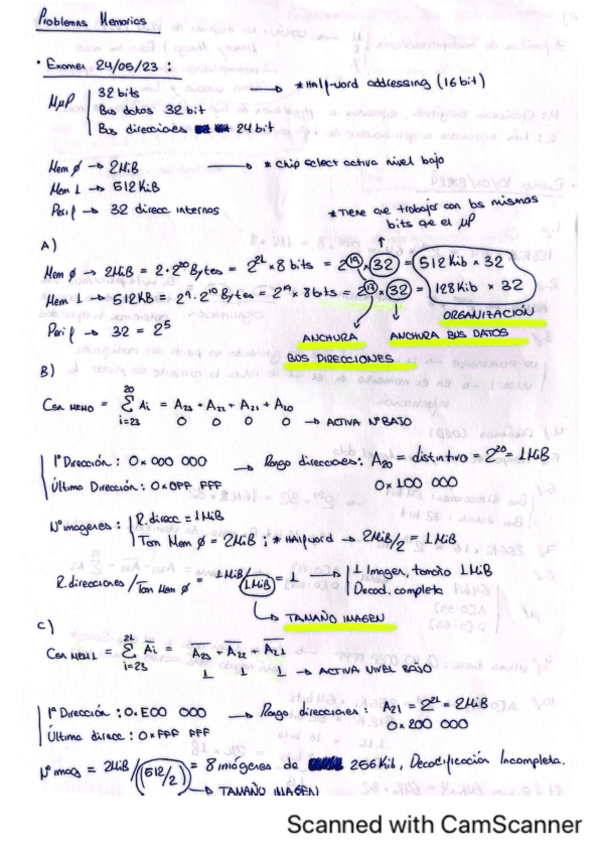 Problemas Memorias
• Examen 24/05/23 :
µP | 32 bits → * Half-word addressing (16 bit)
Bus datos 32 bit
Bus direcciones 24 bit
Mem ∅ → 2MiB → * chip select activa nivel bajo
Mem 1 → 512 KiB
Peri f → 32 direcc internos
* Tiene que trabajar con los mismos
bits que el µP
A)
Mem ∅ → 2MiB = 2·2^20 Bytes = 2^21 x 8 bits = 2^19 x 32 = 512 Kib x 32
Mem 1 → 512KB = 2^9 · 2^10 Bytes = 2^19 x 8bits = 2^17 x 32 = 128Kib x 32
ORGANIZACIÓN
Peri f → 32 = 2^5
ANCHURA
BUS DIRECCIONES
ANCHURA BUS DATOS
B)
CS∅ MEM0 = Σ Ai = A23 + A22 + A21 + A20
20
i=23 0 0 0 0 → ACTIVA Nº BAJO
1ª Dirección : 0x 000 000 → Rango direcciones: A20 = distintivo = 2^20 = 1MiB
Última Dirección : 0x0FF FFF 0x 100 000
Nº imagenes : | R. direcc = 1MiB
Tam Mem ∅ = 2MiB ; * Halfword → 2MiB/2 = 1MiB
R. direcciones / Tam Mem ∅ = 1MiB / 1MiB = 1 → | 1 Imagen, tamaño 1MiB
Decod. completa
TAMAÑO IMAGEN
C)
MEM1 = Σ Ai = A23 + A22 + A21
21
i=23 1 1 1 → ACTIVA NIVEL BAJO
1ª Dirección : 0x E00 000 → Rango direcciones : A21 = 2^21 = 2MiB
Última direcc : 0x FFF FFF 0x 200 000
Nº imag = 2MiB / (512/2) = 8 imágenes de 256Kib, Decodificación Incompleta.
TAMAÑO IMAGEN
Scanned with CamScanner